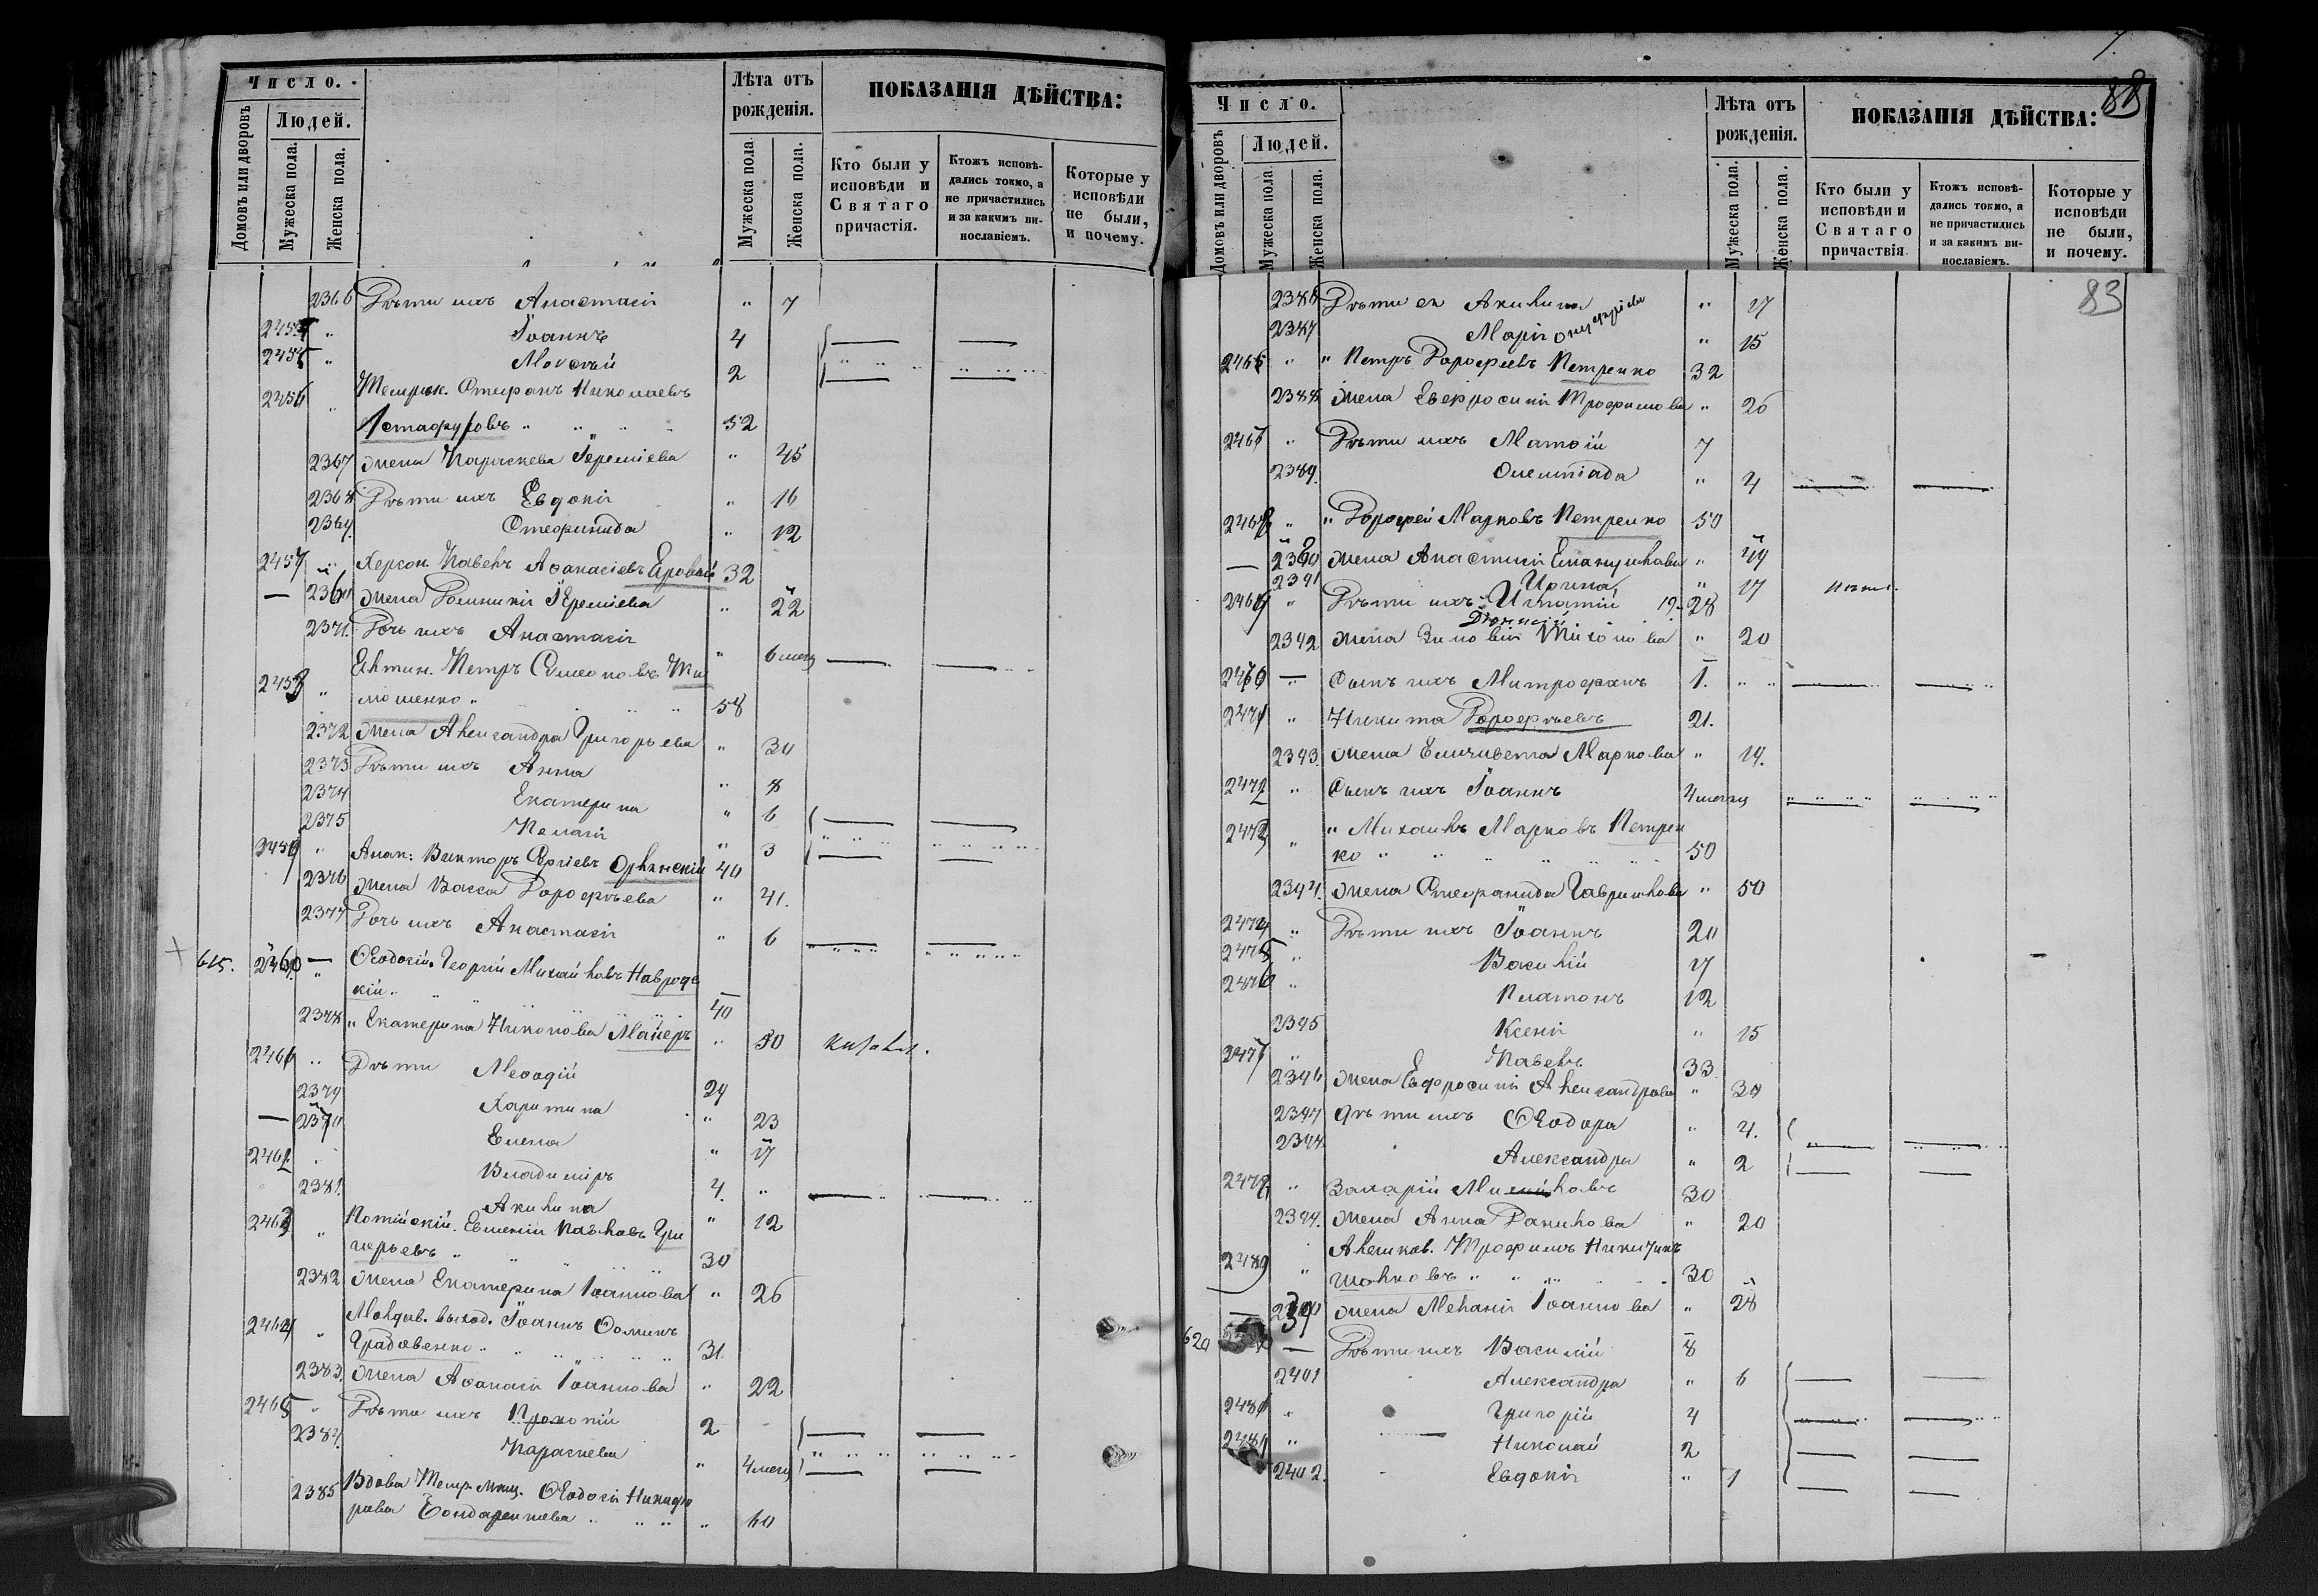 Число.
Людей.
Домовъ или дворовъ
Мужеска пола.
Женска пола.
Лѣта отъ
рожденія.
Мужеска пола
Женска пола.
ПОКАЗАНІЯ ДѢЙСТВА:
Кто были у
исповѣди и
Святаго
причастія.
Ктожъ исповѣ-
дались токмо, а
не причастились
и за какимъ ви-
нословіемъ.
Которые у
исповѣди
не были,
и почему.
2366 Дѣти ихъ Анастасія " 7
" Іоаннъ 4
" Моѵсей 2
2456 Темрюк. Стефанъ Николаевъ
52
2367 жена Параскева Іереміева " 45
2368 Дѣти ихъ Евдокія " 16
2369 Стефанида " 12
2457 Херсон. Павелъ Аѳанасіевъ 32
жена Домникія Іереміева " 22
2371. Дочь ихъ Анастасія " 6 мѣсяц
2458 " Петръ Симеоновъ Ти
мошенко " 58
2372 жена Александра Григорьева " 30
2373 Дѣти ихъ Анна " 8
2374 Екатерина " 6
2375 Пелагія " 3
2459 " Анап: Викторъ Сергіевъ Орлянскій 40
2376 жена Васса Дороѳѣева " 41.
2377 Дочь ихъ Анастасія " 6
615. 2460 Ѳеодосій. Георгій Михайловъ Наврод
кій. 40
2378 " Екатерина Никонова Майеръ " 50
2461 " Дѣти Меѳодій 24
2379 Харитина " 23
Елена " 17
2462 Владиміръ 4. "
2381. Акилина " 12
2463 " Евгеній Павловъ Гри
горьевъ " 30
2382 жена Екатерина Іоаннова " 26
2464 " Молдав. выход. Іоаннъ Ѳоминъ
Градовенко " 31
2383. жена Аѳанасія Іоаннова " 22
2465 " Дѣти ихъ Прокопій 2
2384. Параскева " 4 мѣсяц
2385 Вдова Темр. мѣщ. Ѳеодосія Никифо
рова Бондаренкова " 60
7.
88
Число.
Людей.
Домовъ или дворовъ
Мужеска пола
Женска пола.
Лѣта отъ
рожденія.
Мужеска пола.
Женска пола.
ПОКАЗАНІЯ ДѢЙСТВА:
Кто были у
исповѣди и
Святаго
причаствія
Ктожъ исповѣ-
дались токмо, а
не причастились
и за какимъ ви-
нословіемъ.
Которые у
исповѣди
не были,
и почему.
83
2386 Дѣти ея Акилина " 17
2387 Марія " 15
2466 " " Петръ Дороѳеевъ Петренко 32
2388 жена Евфросинія Трофимова " 26
2467 " Дѣти ихъ Матѳій 7
2389. Олимпіада " 4
2468 " " Дороѳей Марковъ Петренко 50
жена Анастасія Емануилова " 49
2391 Ирина " 17
2469 " Дѣти ихъ Игнатій 28
2392 жена Зиновія Тихонова " 20
2470 Сынъ ихъ Митрофанъ 1. "
2471 " Никита Дороѳѣевъ 21.
2393. жена Елисавета Маркова " 19.
2472 " Сынъ ихъ Іоаннъ 4 мѣсяц
2473 " " Михаилъ Марковъ Петрен
ко " 50
2394. жена Стефанида Гаврилова " 50
2474 " Дѣти ихъ Іоаннъ 20
2475 " Василій 17
2476 " Платонъ 12
2395 Ксенія " 15
2477 " Павелъ 33
2396 жена Евфросинія Александрова " 30
2397 Дѣти ихъ Ѳеодора " 4.
Александра " 2
2478 " Захарій Михайловъ 30
жена Анна Данилова " 20
" Трофимъ
30
жена Меланія Іоаннова " 28
620 Дѣти ихъ Василій 8
2401 Александра " 6
2480 " Григорій 4
2481 " Николай 2
2402. Евдокія " 1